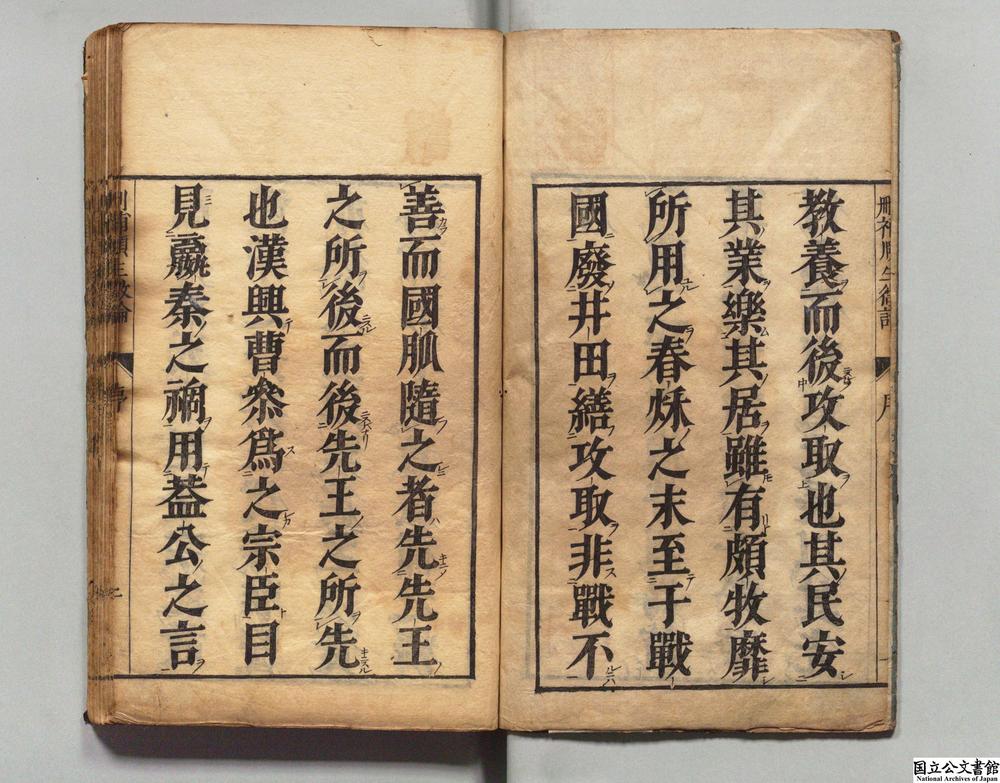 教養而後攻取也其民安
其業樂其居雖有頗牧靡
所用之春秌之末至于戰
國廢井田繕攻取非戰不
善而國胍隨之者先先王
之所後而後先王之所先
也漢興曹叅爲之宗臣目
見嬴秦之禍用葢公之言
国立公文書館
National Archives of Japan